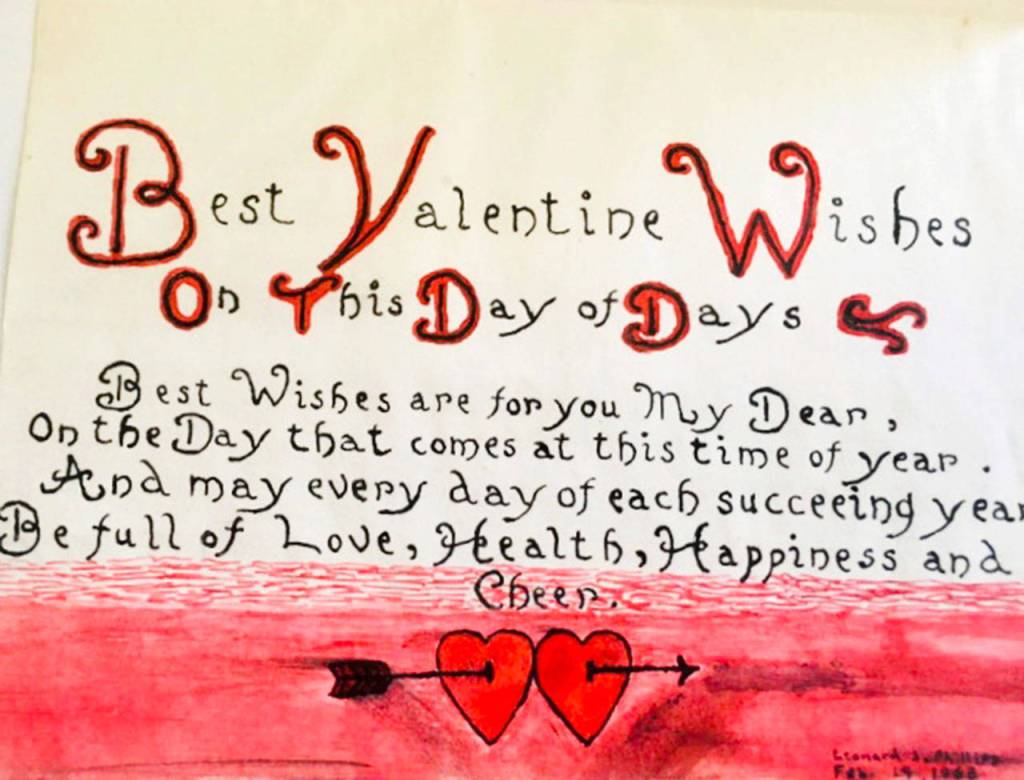 Best Valentine Wishes
On This Day of Days
Best Wishes are for you My Dear,
On the Day that comes at this time of year.
And may every day of each succeeing year
Be full of Love, Health, Happiness and
Cheer.
Leonard J.
Feb. 14